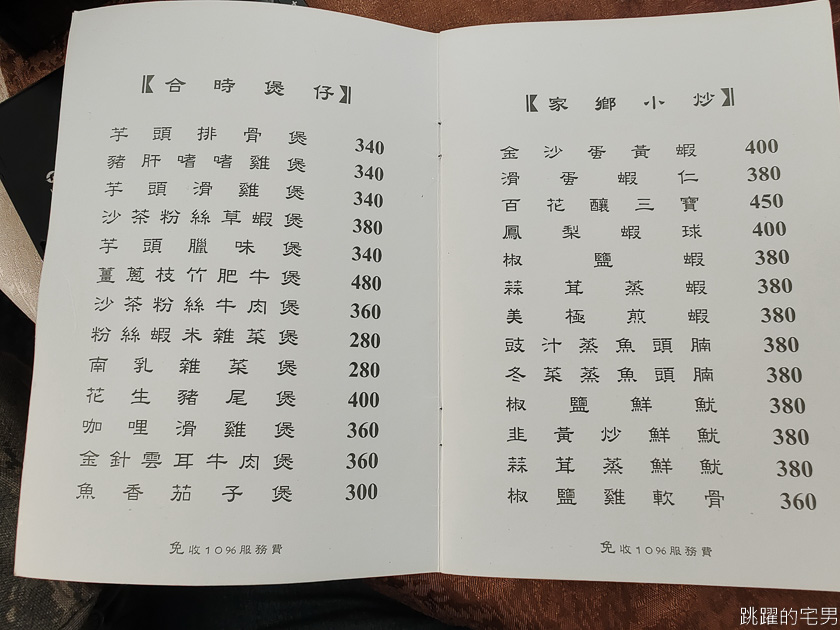 【合時煲仔】
芋頭排骨煲 340
豬肝嗜嗜雞煲 340
芋頭滑雞煲 340
沙茶粉絲草蝦煲 380
芋頭臘味煲 340
薑蔥枝竹肥牛煲 480
沙茶粉絲牛肉煲 360
粉絲蝦米雜菜煲 280
南乳雜菜煲 280
花生豬尾煲 400
咖哩滑雞煲 360
金針雲耳牛肉煲 360
魚香茄子煲 300
免收10%服務費
【家鄉小炒】
金沙蛋黃蝦 400
滑蛋蝦仁 380
百花釀三寶 450
鳳梨蝦球 400
椒鹽蝦 380
蒜茸蒸蝦 380
美極煎蝦 380
豉汁蒸魚頭腩 380
冬菜蒸魚頭腩 380
椒鹽鮮魷 380
韭黃炒鮮魷 380
蒜茸蒸鮮魷 380
椒鹽雞軟骨 360
免收10%服務費
跳躍的宅男